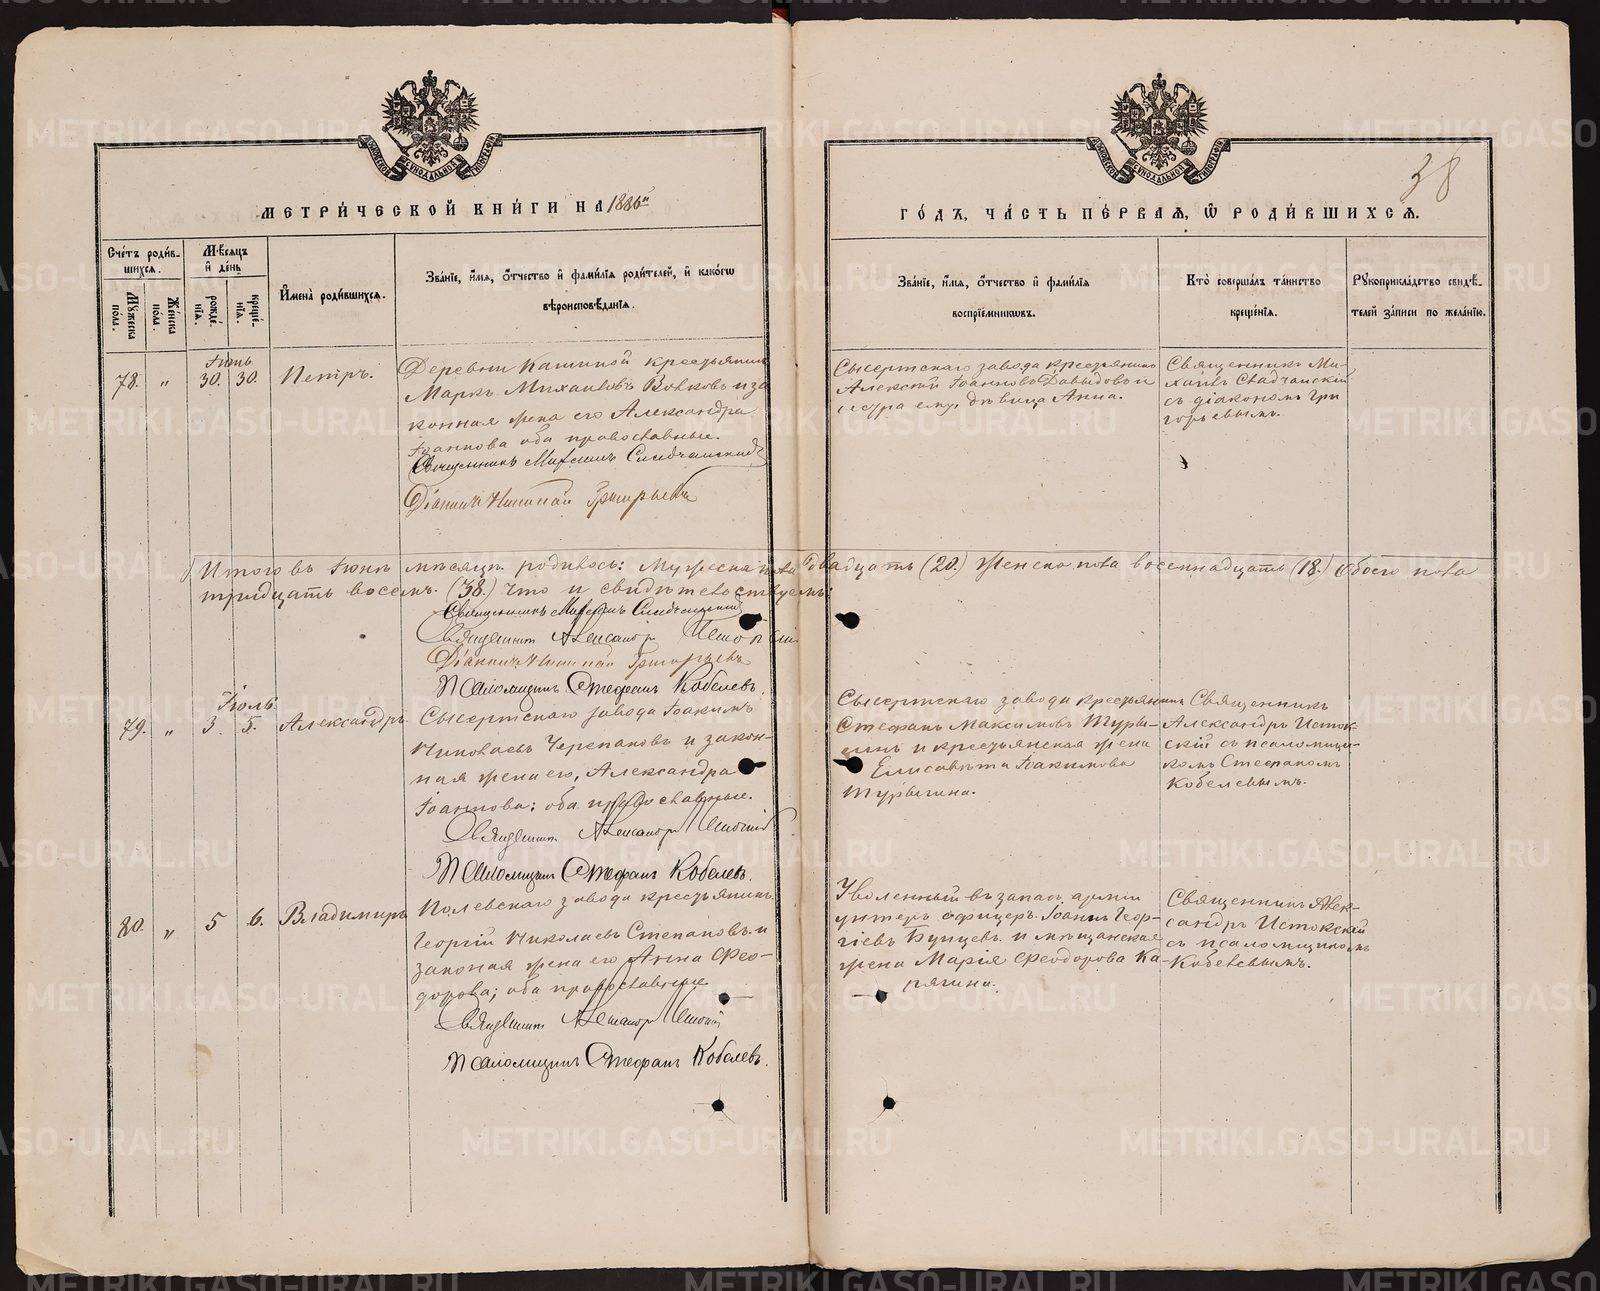 МЕТРИ́ЧЕСКОЙ КНИ́ГИ НА 1886й
ГО́ДЪ, ЧА́СТЬ ПЕ́РВАЯ, Ѽ РОДИ́ВШИХСЯ.
38
Сче́тъ роди́в-
шихся.
Мѣсяцъ
и́ де́нь
Мꙋжеска пола.
Же́нска пола.
рожде́нїя.
креще́нїя.
И҆мена̀ роди́вшихся.
Зва́нїе, и҆́мя, ѻ҆́тчество и҆ фами́лїя роди́телей, и҆ како́гѡ
вѣроисповѣ́данїя.
Зва́нїе, и҆́мя, ѻ҆́тчество и҆ фами́лїя
воспрїе́мникѡвъ.
Кто̀ соверша́лъ та́инство
креще́нїя.
Рꙋкоприкла́дство свидѣ́-
телей за́писи по жела́нїю.
Іюнь
78. „ 30. 30. Петръ.
Деревни Кашиной крестьянин
Маркъ Михаиловъ Волковъ и за
конная жена его Александра
Іоаннова оба православные.
Священникъ Михаилъ
Діаконъ Николай Григорьевъ
Сысертскаго завода крестьянинъ
Алексій Іоанновъ Давыдовъ и
сестра ему, дѣвица Анна.
Священникъ Ми-
хаилъ
съ діакономъ Гри
горьевымъ.
Итого въ Іюнѣ мѣсяцѣ родилось: Мужеска пола двадцать (20.) Женска пола восемнадцать (18.) Обоего пола
тридцать восемь. (38.) Что и свидѣтельствуемъ:
Священникъ Михаилъ
Священникъ Александръ Истокскій
Діаконъ Николай Григорьевъ
Псаломщикъ Стефанъ Кобелевъ.
Іюль
79. „ 3. 5. Александръ.
Сысертскаго завода Іоакимъ
Николаевъ Черепановъ и закон-
ная жена его, Александра
Іоаннова; оба православные.
Священникъ Александръ Истокскій
Псаломщикъ Стефанъ Кобелевъ.
Сысертскаго завода крестьянинъ
Стефанъ Максимовъ Турыгинъ и крестьянская жена
Елисавета Іоакимова
Турыгина.
Священникъ
Александръ Исток-
скій съ псаломщи-
комъ Стефаномъ
Кобелевымъ.
80. „ 5 6. Владимиръ
Полевскаго завода крестьянинъ
Георгій Николаевъ Степановъ и
законая жена его Анна Фео-
дорова; оба православные
Священникъ Александръ Истокскій
Псаломщикъ Стефанъ Кобелевъ.
Уволенный въ запасъ арміи
унтеръ офицеръ Іоаннъ Геор-
гіевъ Бунцевъ и мѣщанская
жена Марія Феодорова Ка-
рягина.
Священникъ Алек-
сандръ Истокскій
съ псаломщикомъ
Кобелевымъ.
METRIKI.GASO-URAL.RU